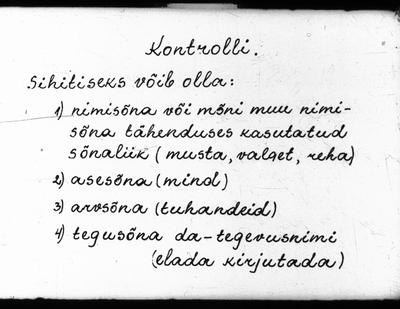 Kontrolli.
Sihitiseks võib olla:
1) nimisõna või mõni muu nimi-
sõna tähenduses kasutatud
sõnaliik (musta, valget, reha)
2) asesõna (mind)
3) arvsõna (tuhandeid)
4) tegusõna da-tegevusnimi
(elada kirjutada)